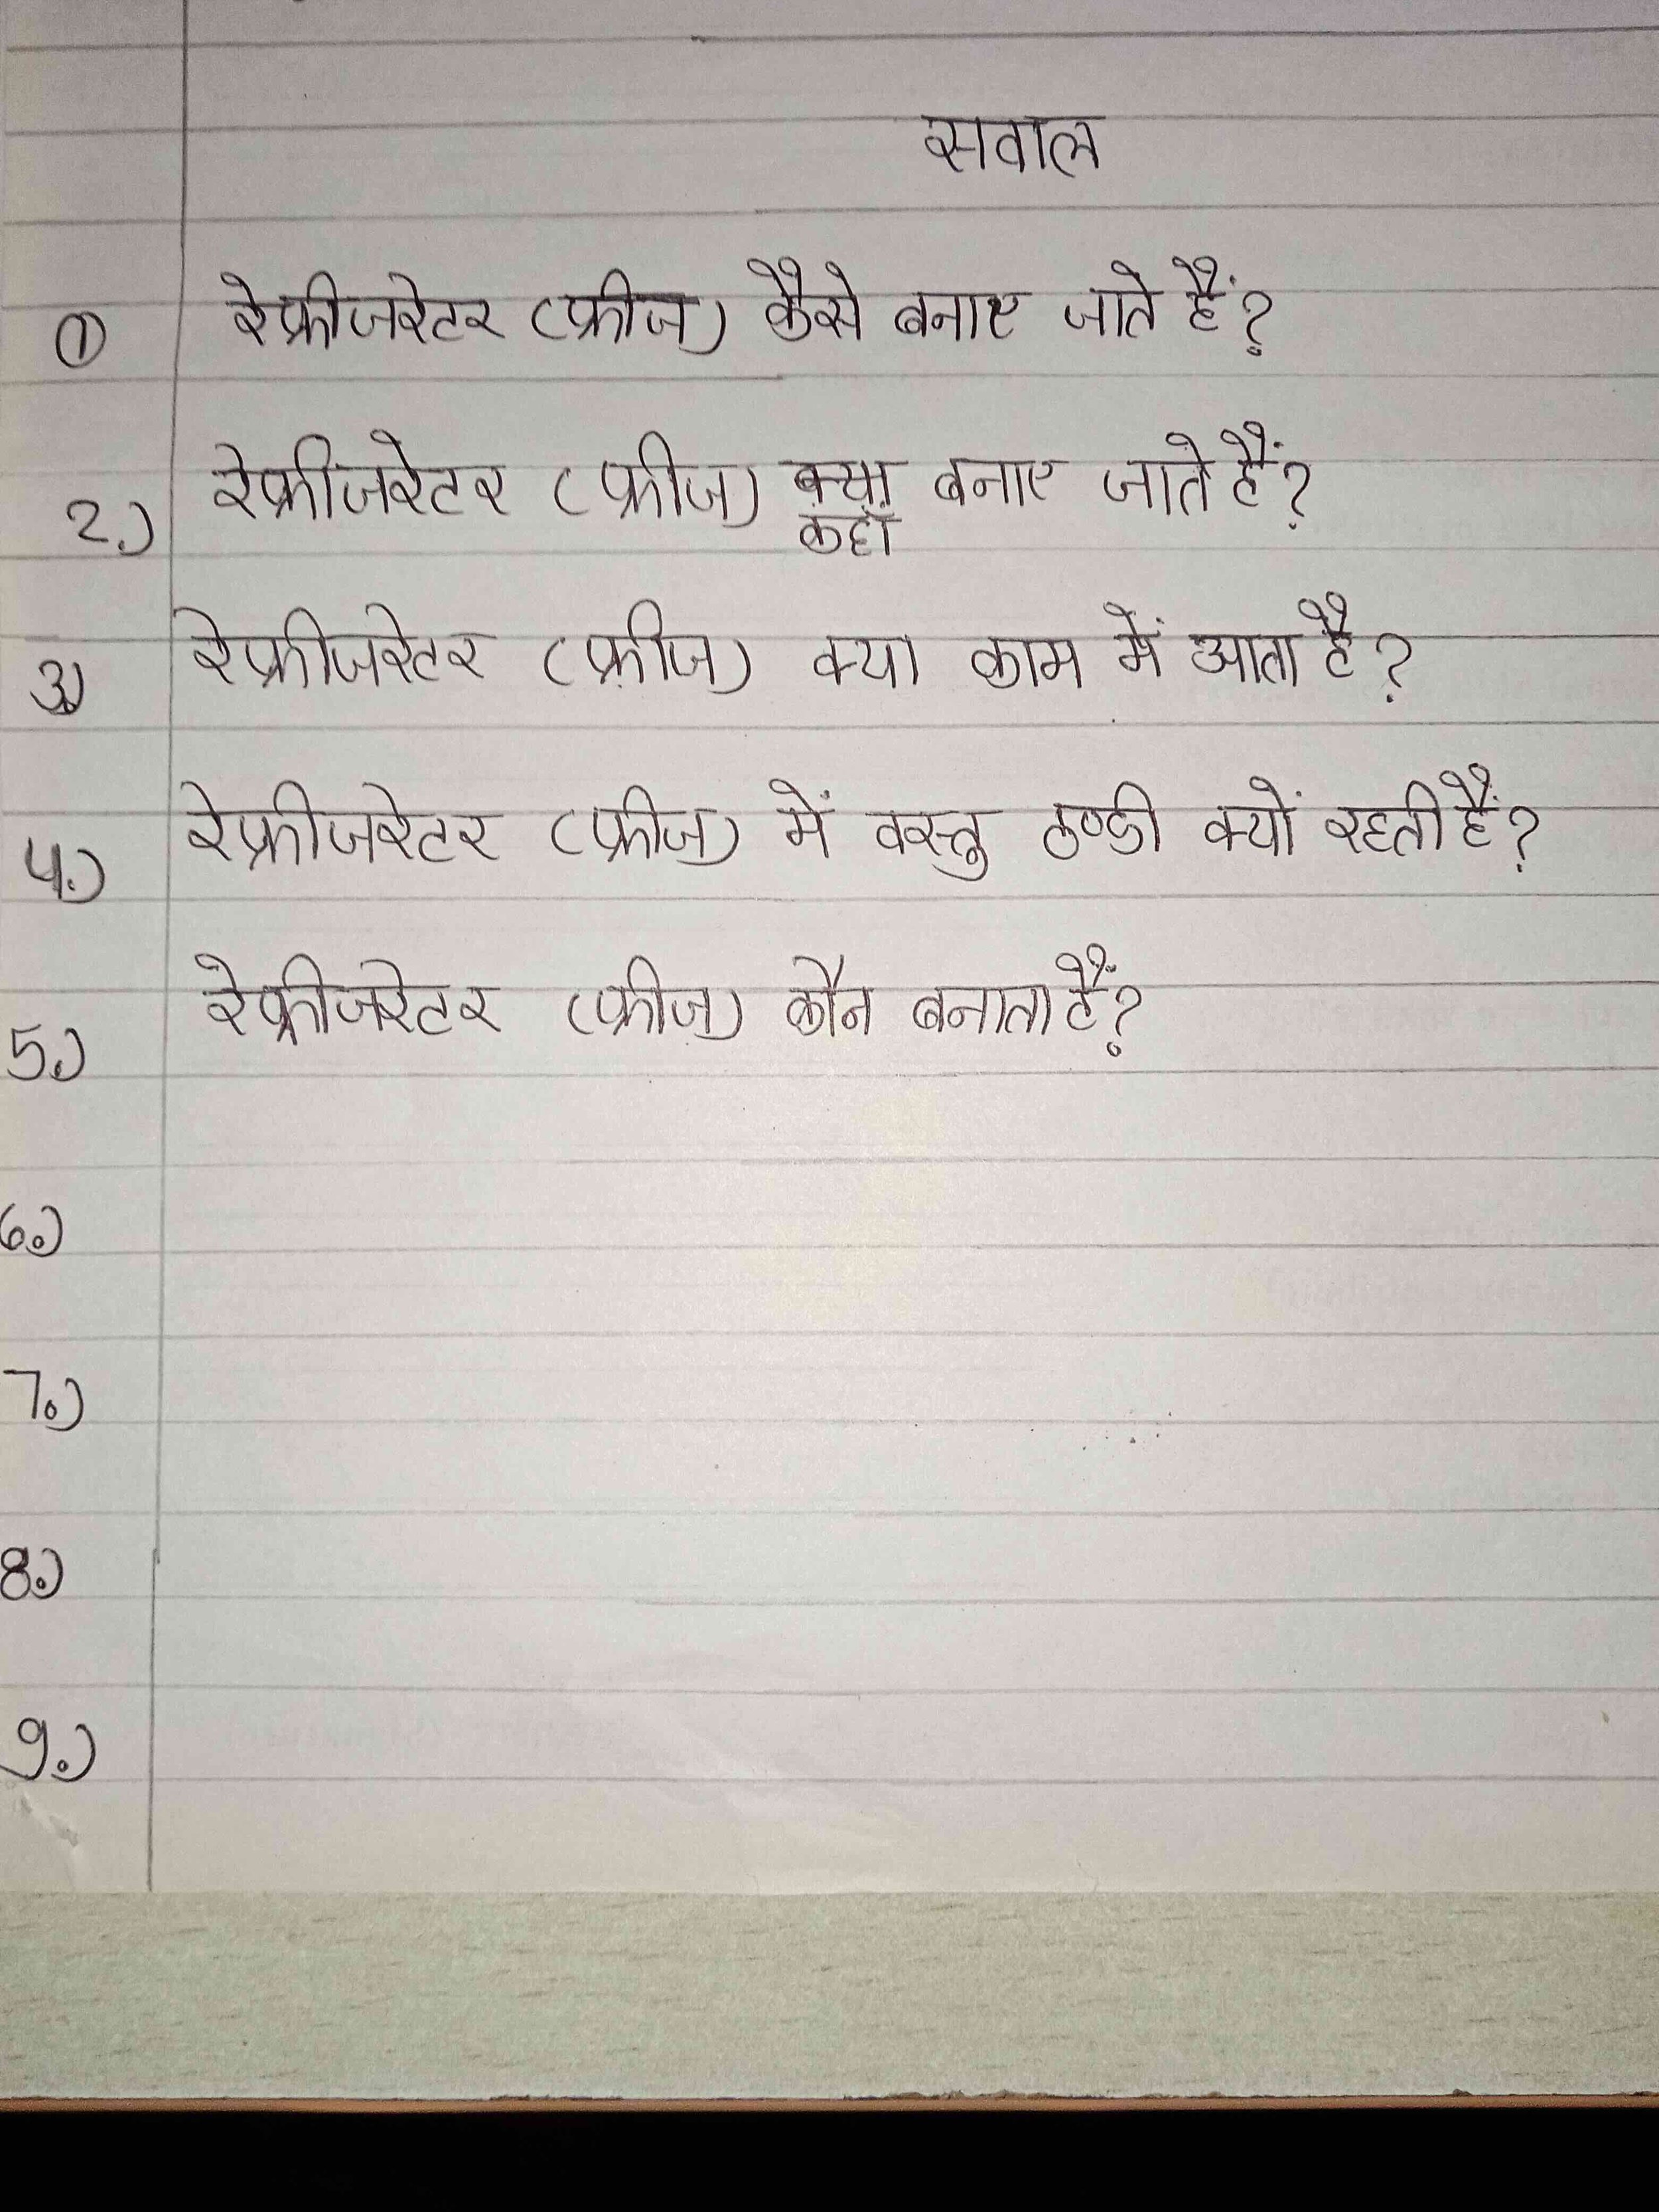 सवाल
① रेफ्रीजरेटर (फ्रीज) कैसे बनाए जाते हैं?
2.) रेफ्रीजरेटर (फ्रीज) क्या बनाए जाते हैं?
कहाँ
3) रेफ्रीजरेटर (फ्रीज) क्या काम में आता है?
4.) रेफ्रीजरेटर (फ्रीज) में वस्तु ठण्डी क्यों रहती हैं?
5.) रेफ्रीजरेटर (फ्रीज) कौन बनाता हैं?
6.)
7.)
8.)
9.)